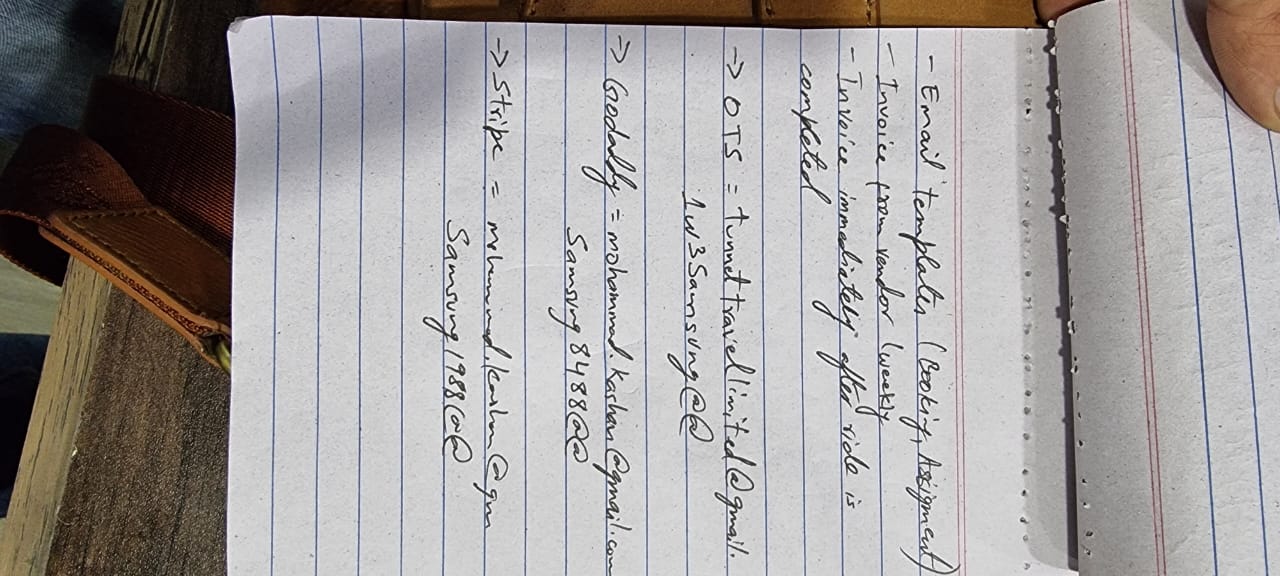 - Email templates (Booking, Assigment)
- Invoice from vendor (weekly
- Invoice immediately after ride is
completed
-> OTS = tunnettravellimited@gmail.
1w3Samsung@@
-> Godaddy = mohammad.kashan@gmail.com
Samsung8488@@
-> Stripe = mohammad.kashan@gm
Samsung1988@@